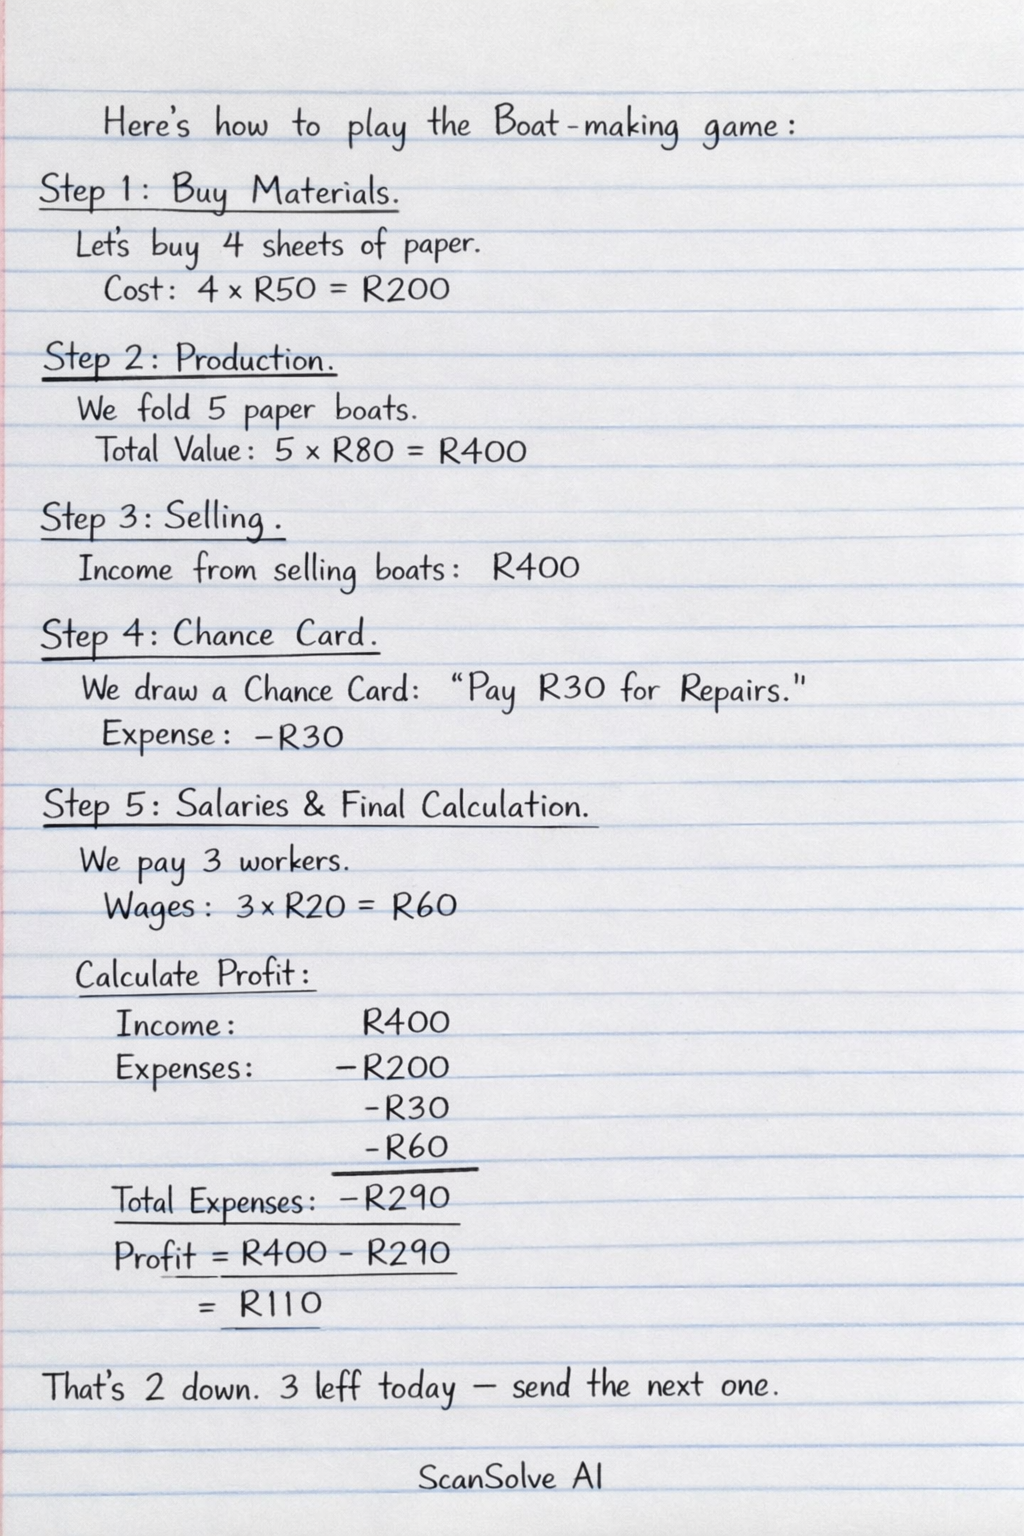 Here's how to play the Boat-making game:
Step 1: Buy Materials.
Let's buy 4 sheets of paper.
Cost: 4 x R50 = R200
Step 2: Production.
We fold 5 paper boats.
Total Value: 5 x R80 = R400
Step 3: Selling.
Income from selling boats: R400
Step 4: Chance Card.
We draw a Chance Card: "Pay R30 for Repairs."
Expense: -R30
Step 5: Salaries & Final Calculation.
We pay 3 workers.
Wages: 3x R20 = R60
Calculate Profit:
Income: R400
Expenses: -R200
-R30
-R60
Total Expenses: -R290
Profit = R400 - R290
= R110
That's 2 down. 3 leff today — send the next one.
ScanSolve AI